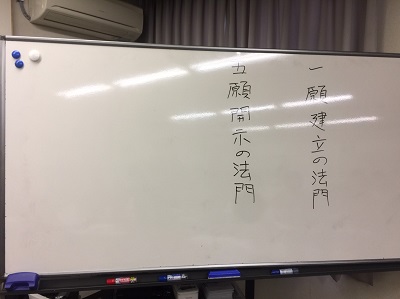 一願建立の法門
五願開示の法門